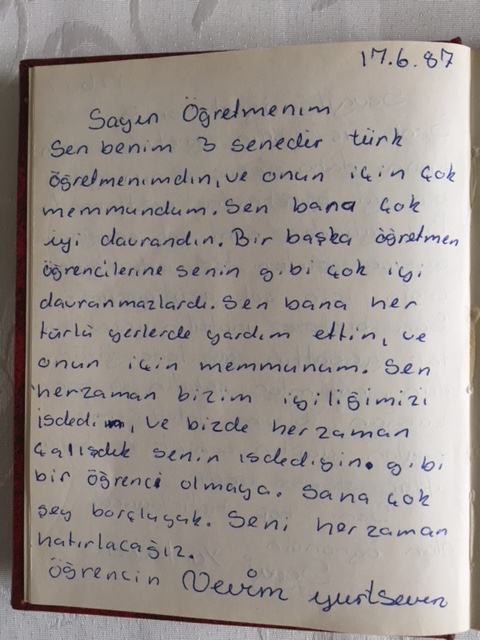 17.6.87
Sayın Öğretmenim
Sen benim 3 senedir türk
öğretmenimdin, ve onun için çok
memmundum. Sen bana çok
iyi davrandın. Bir başka öğretmen
öğrencilerine senin gibi çok iyi
davranmazlardı. Sen bana her
türlü yerlerde yardım ettin, ve
onun için memmunum. Sen
herzaman bizim iyiliğimizi
isdedin, ve bizde herzaman
çalışdık senin isdediyin gibi
bir öğrenci olmaya. Sana çok
şey borçluyuk. Seni herzaman
hatırlacağız.
Öğrencin Nevim yurtseven